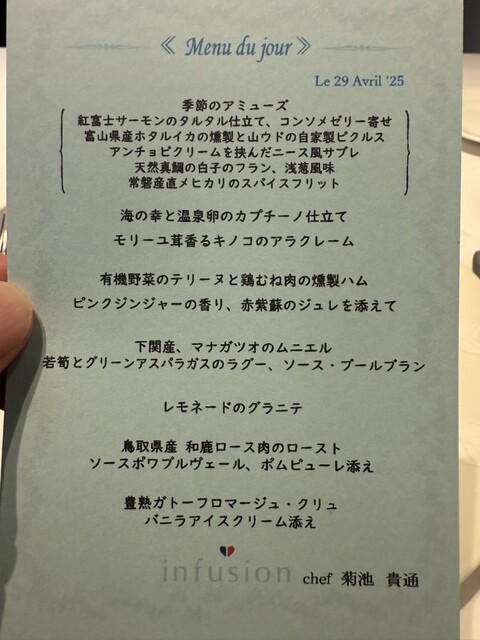 《 Menu du jour 》
Le 29 Avril '25
季節のアミューズ
紅富士サーモンのタルタル仕立て、コンソメゼリー寄せ
富山県産ホタルイカの燻製と山ウドの自家製ピクルス
アンチョビクリームを挟んだニース風サブレ
天然真鯛の白子のフラン、浅葱風味
常磐産直メヒカリのスパイスフリット
海の幸と温泉卵のカプチーノ仕立て
モリーユ茸香るキノコのアラクレーム
有機野菜のテリーヌと鶏むね肉の燻製ハム
ピンクジンジャーの香り、赤紫蘇のジュレを添えて
下関産、マナガツオのムニエル
若筍とグリーンアスパラガスのラグー、ソース・ブールブラン
レモネードのグラニテ
鳥取県産 和鹿ロース肉のロースト
ソースポワブルヴェール、ポムピューレ添え
豊熟ガトーフロマージュ・クリュ
バニラアイスクリーム添え
infusion chef 菊池 貴通